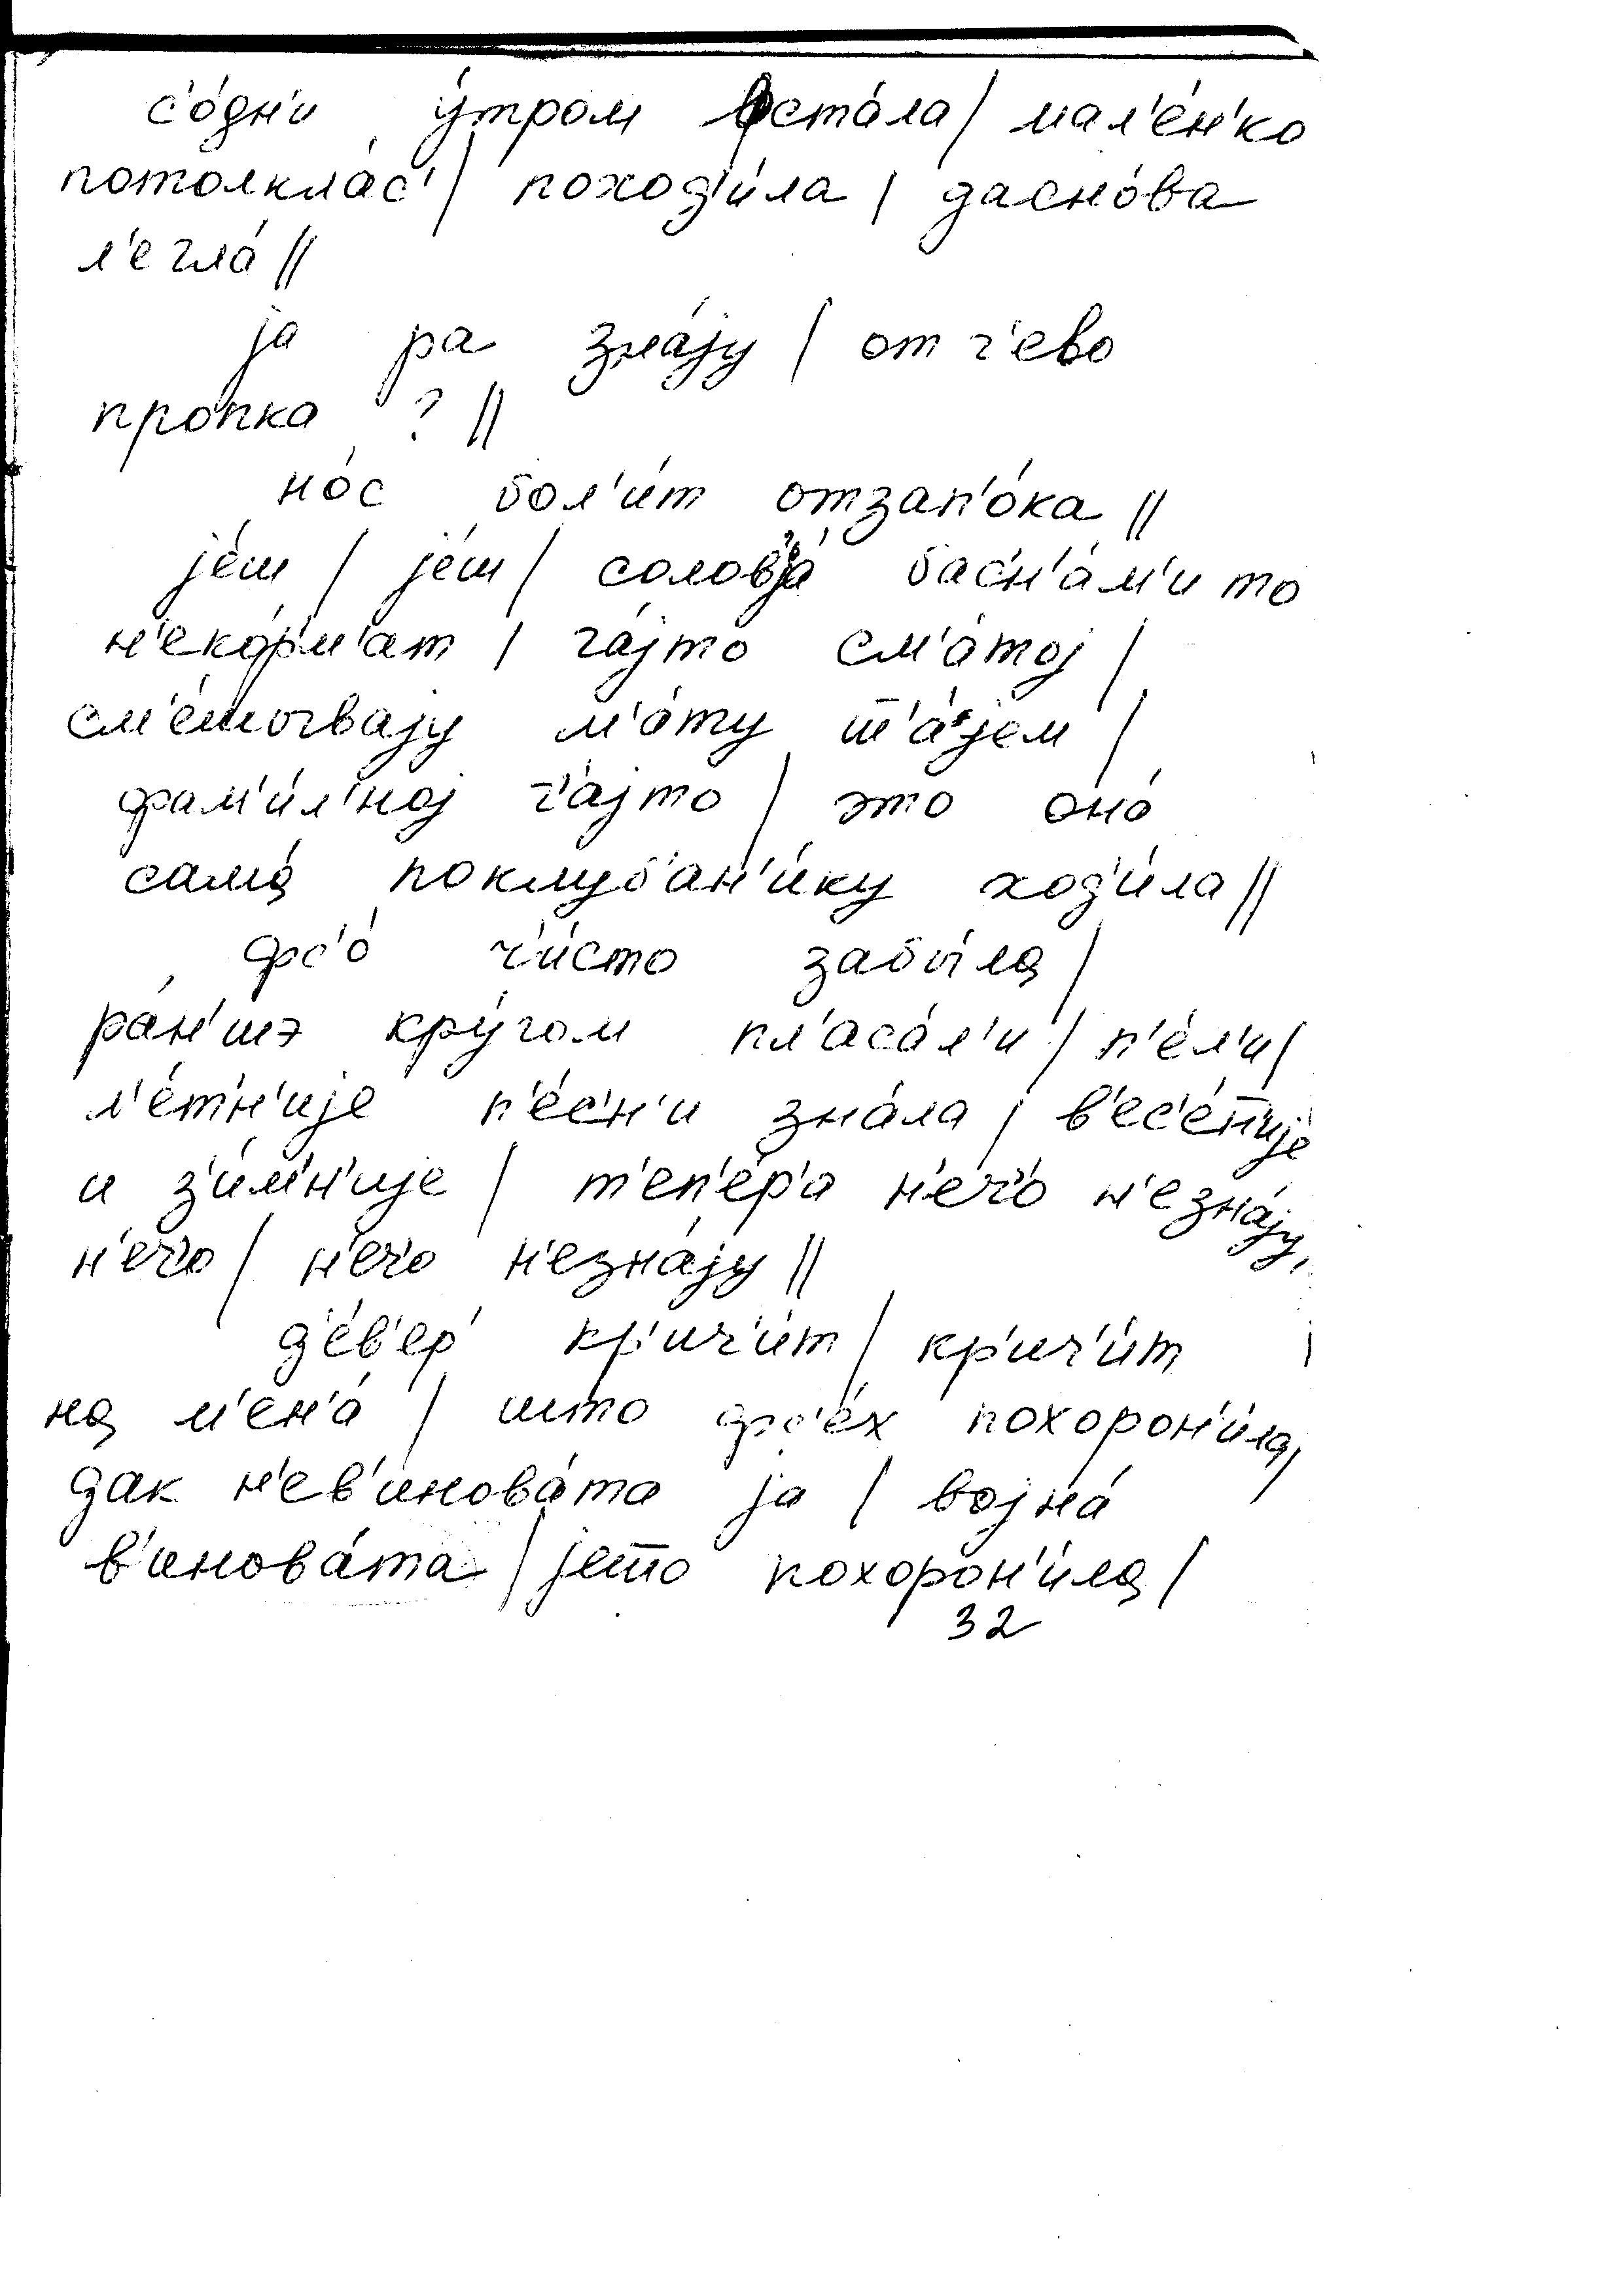 с'о́дн'и у́тром фста́ла / мал'е́н'ко
потолкла́с' / поход'и́ла / дасно́ва
л'егла́ //
ја ра зна́ју / от ч'ево
пропка ? //
но́с бол'и́т отзап'о́ка //
је́ш / је́ш / соловја́ басн'а́м'и то
н'еко́рм'ат / ча́јто см'а́тој /
см'е́шывају м'а́ту ш'а́јем /
фам'и́л'ној ч'а́јто / это она́
сама́ поклубан'и́ку ход'и́ла //
фс'о́ ч'и́сто забы́ла /
ра́н'шэ кру́гом пл'аса́л'и / п'е́л'и /
л'е́т'н'ије п'е́с'н'и зна́ла / в'ес'е́н'ије
и з'и́м'н'ије / т'еп'е́р'а н'еч'о н'езна́ју,
н'еч'о / н'еч'о н'езна́ју //
д'е́в'ер' кр'ич'и́т / кр'ич'и́т
на м'ен'а́ / што фс'е́х похорон'и́ла /
дак н'ев'инова́та ја / војна́
в'инова́та / јешто похорон'и́ла /
32